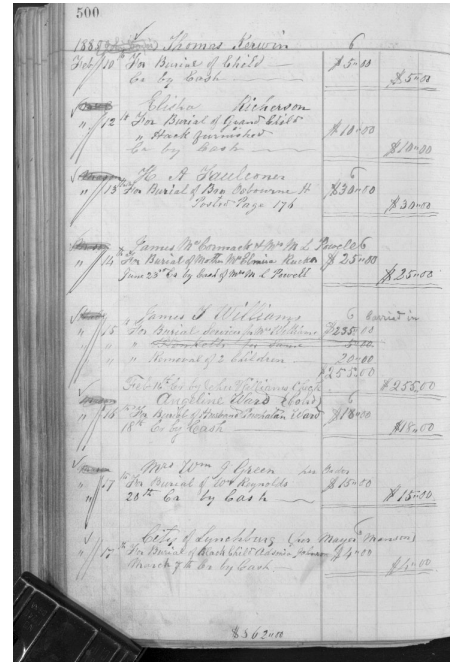 500
Thomas Kerwin 6
Feb 10th For Burial of Child $5.00
Cr by Cash $5.00
Elisha Richerson
" 12th For Burial of Grand Child
" Hack furnished $10.00
Cr by Cash $10.00
H A Faulconer 6
" 13th For Burial of Boy Osbourne H $30.00
Posted Page 176 $30.00
James McCormack & Mrs M L Powell 6
" 14th For Burial of Mother Mrs $25.00
June 23d Cr by Cash of Mrs M L Powell $25.00
" James T Williams 6 Carried in
" 15 For Burial Services for Mrs Williams $235.00
" "
" " Removal of 2 Children 20.00
$255.00
Feb Cr by John Williams Check $255.00
Angeline Ward (Cold) 6
" 16th For Burial of Husband Ward $18.00
18th Cr by Cash $18.00
Mrs Wm G Green
" 17th For Burial of Wm Reynolds $15.00
20th Cr by Cash $15.00
City of Lynchburg (per Mayor Manson)
" 17th For Burial of Black Child $4.00
March 7th Cr by Cash $4.00